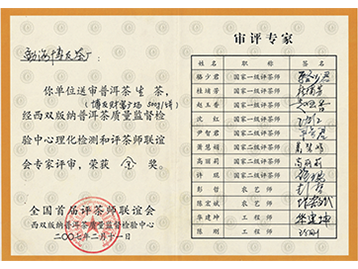 勐海博友茶厂：
你单位送审普洱茶生茶，
（博友财富广场 500g/饼）
经西双版纳普洱茶质量监督检
验中心理化检测和评茶师联谊
会专家评审，荣获 金 奖。
全国首届评茶师联谊会
西双版纳普洱茶质量监督检验中心
二〇〇七年二月十一日
审评专家
姓名 职称 签名
骆少君 国家一级评茶师
桂埔芳 国家一级评茶师
赵玉香 国家一级评茶师
沈红 国家一级评茶师
尹智君 国家二级评茶师
萧慧娟 国家二级评茶师
高丽莉 国家二级评茶师
许琨 国家二级评茶师
彭哲 农艺师
陈宏斌 农艺师
华建坤 工程师
陈刚 工程师